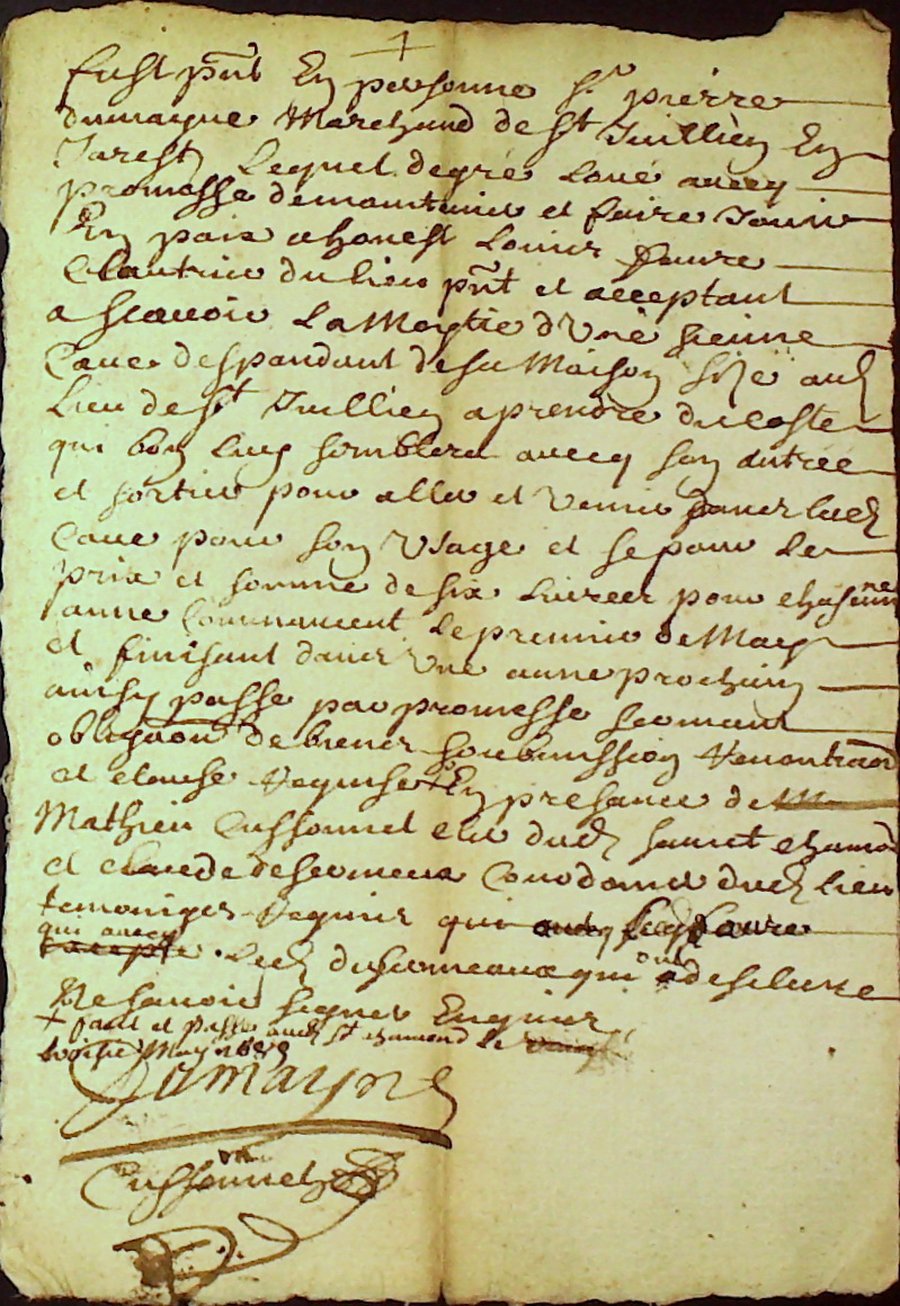 +
fust pnt En personne Sr pierre
dumayne Marchand de St Juillien En
Jarest Lequel degré Loué avecq
promesse demaintenir et faire Jouir
En paix a honest Louis faure
Clautrier du lieu pnt et acceptant
a scavoir La Moytié d'Une sienne
Cave despandant de sa Maison size aud
Lieu de St Juillien a prendre du coste
qui bon luy semblera avecq son antrée
et sortie pour aller et venir dans lad
Cave pour son Usage et se pour le
prix et somme de six Livres pour chascune
anne Commancent le premier de May
et finisant dans Une anne prochain
ainsy passe par promesse serment
obligaon de biens soubmission Renontiaon
et clause Requise + En presance de
Mathieu Cussonnel clerc dud sainct chamond
et claude descomeaux Cordonnier dud lieu
temoniges Requis qui avecq led faure
qui avecq
Led descomeaux qui ont desclere
Ne scavoir signer Enquis
+ faict et passe aud St chamond le
troisie May
Dumayne
Cussonnel